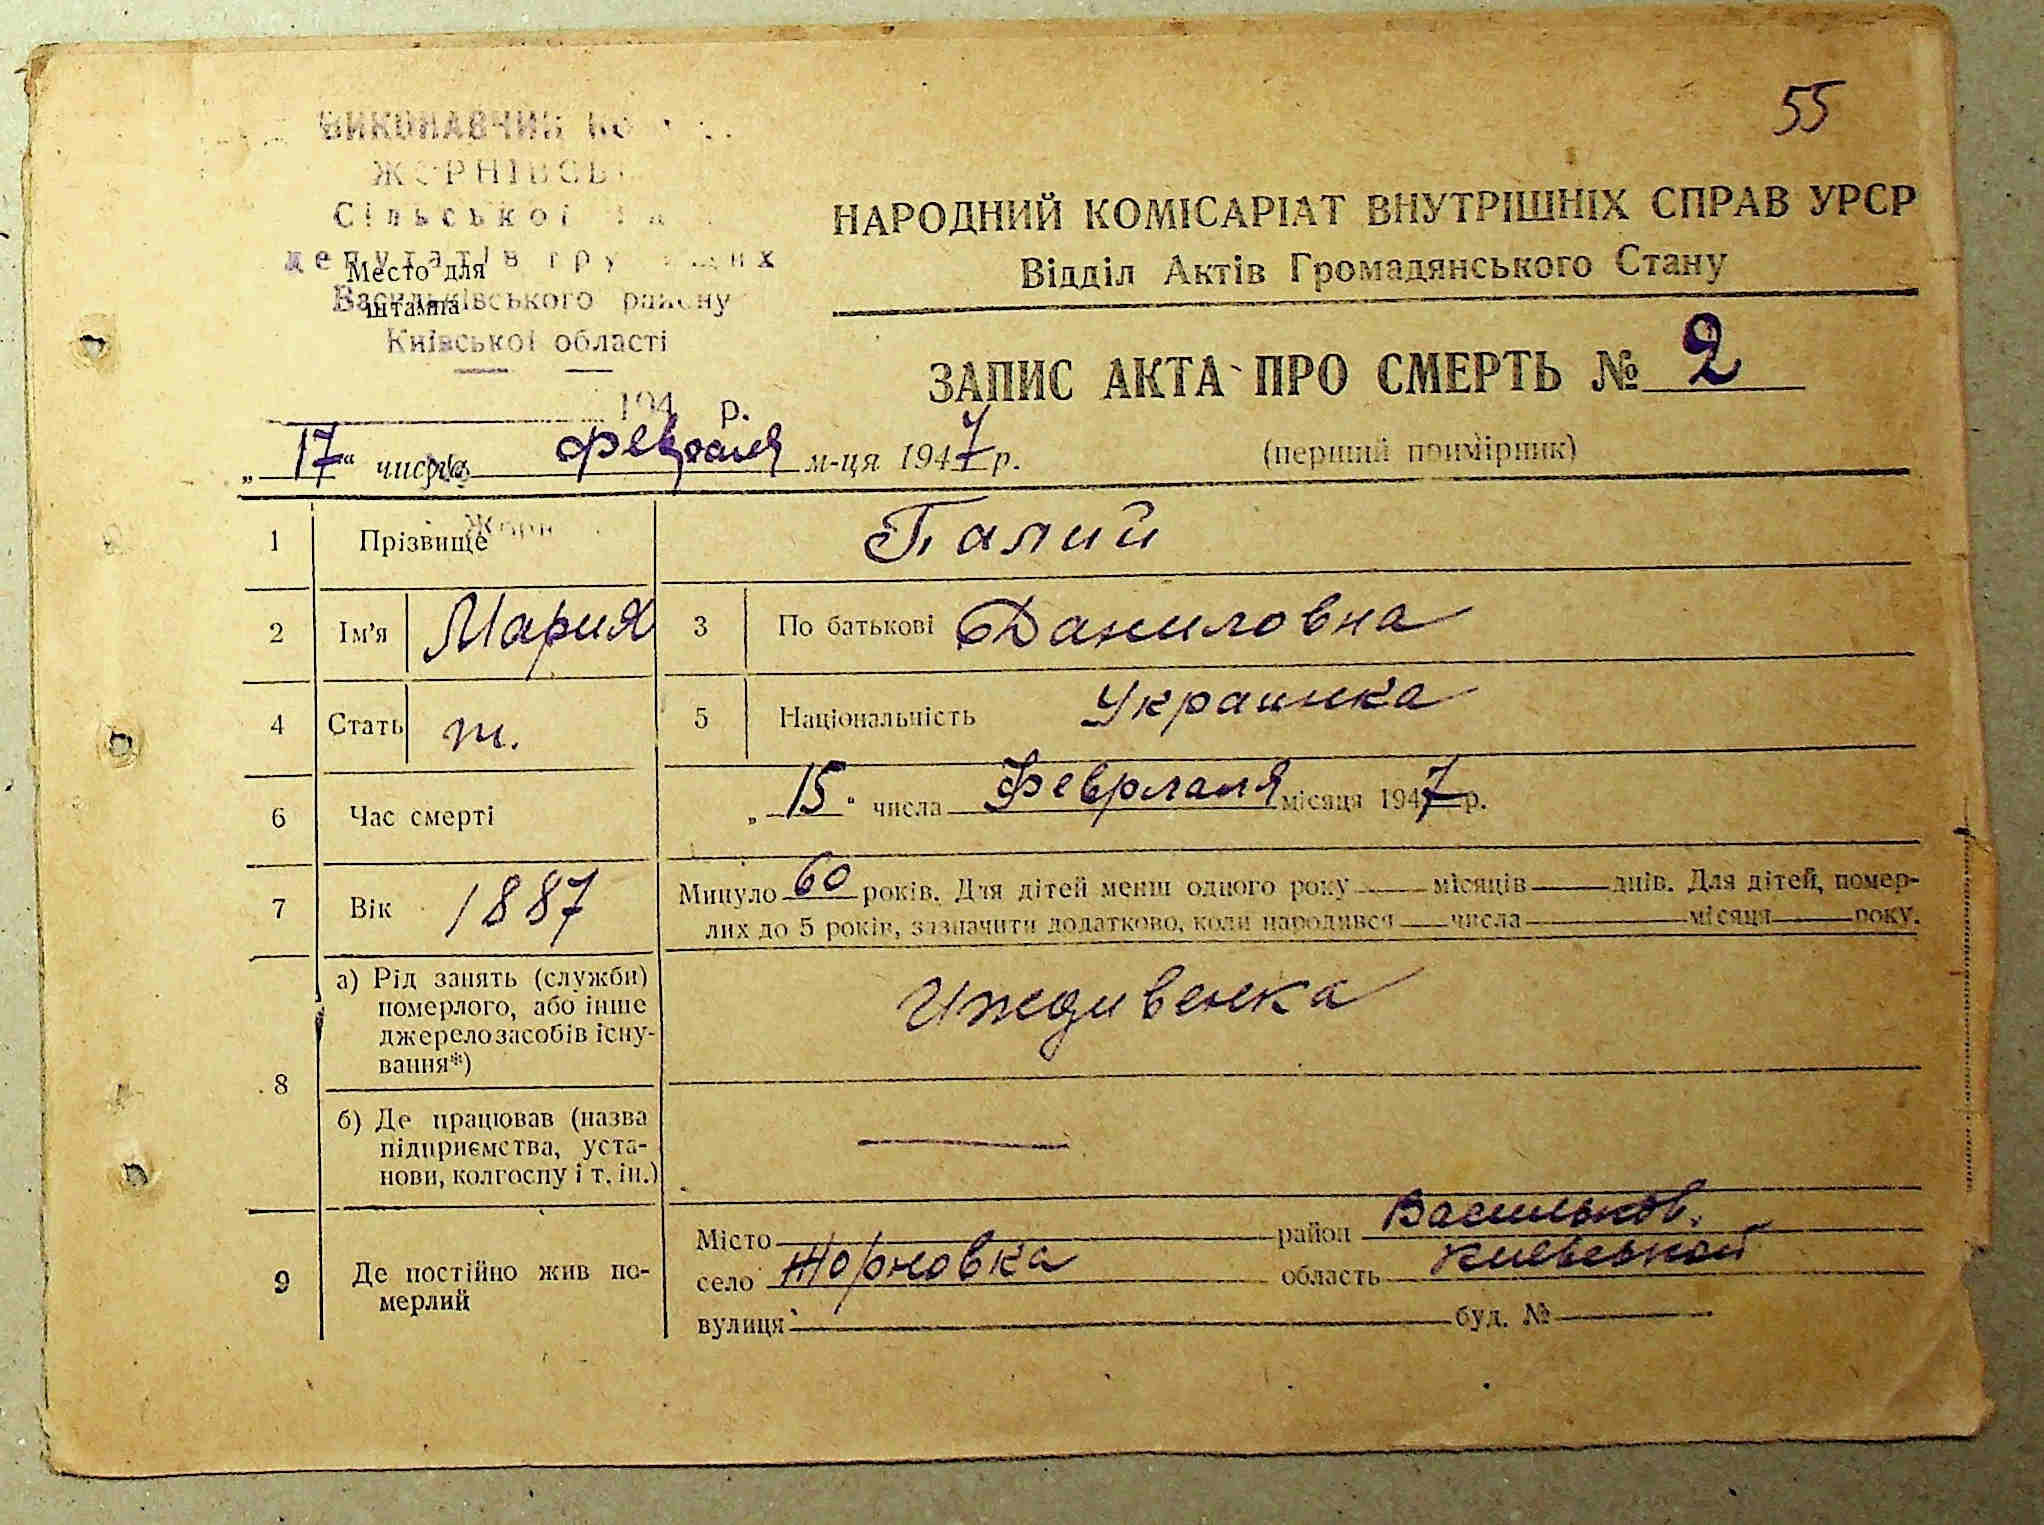 55
ВИКОНАВЧИЙ
Сільської
депутатів
Місто для
штампа
Васильківського району
Київської області
194 р.
НАРОДНИЙ КОМІСАРІАТ ВНУТРІШНІХ СПРАВ УРСР
Відділ Актів Громадянського Стану
ЗАПИС АКТА ПРО СМЕРТЬ № 2
„17“ числа февраля м-ця 1947 р.
(перший примірник)
1 Прізвище Палий
2 Ім'я Мария 3 По батькові Даниловна
4 Стать ж. 5 Національність Украинка
6 Час смерті „15“ числа Феврлаля місяця 1947 р.
7 Вік 1887 Минуло 60 років. Для дітей менш одного року — місяців — днів. Для дітей, помер-
лих до 5 років, зазначити додатково, коли народився — числа — місяця — року.
8 а) Рід занять (служби)
померлого, або інше
джерело засобів існу-
вання*)
Иждивенка
б) Де працював (назва
підприємства, уста-
нови, колгоспу і т. ін.)
—
9 Де постійно жив по-
мерлий
Місто — район Васильков.
село Жорновка область Киевской
вулиця — буд. № —